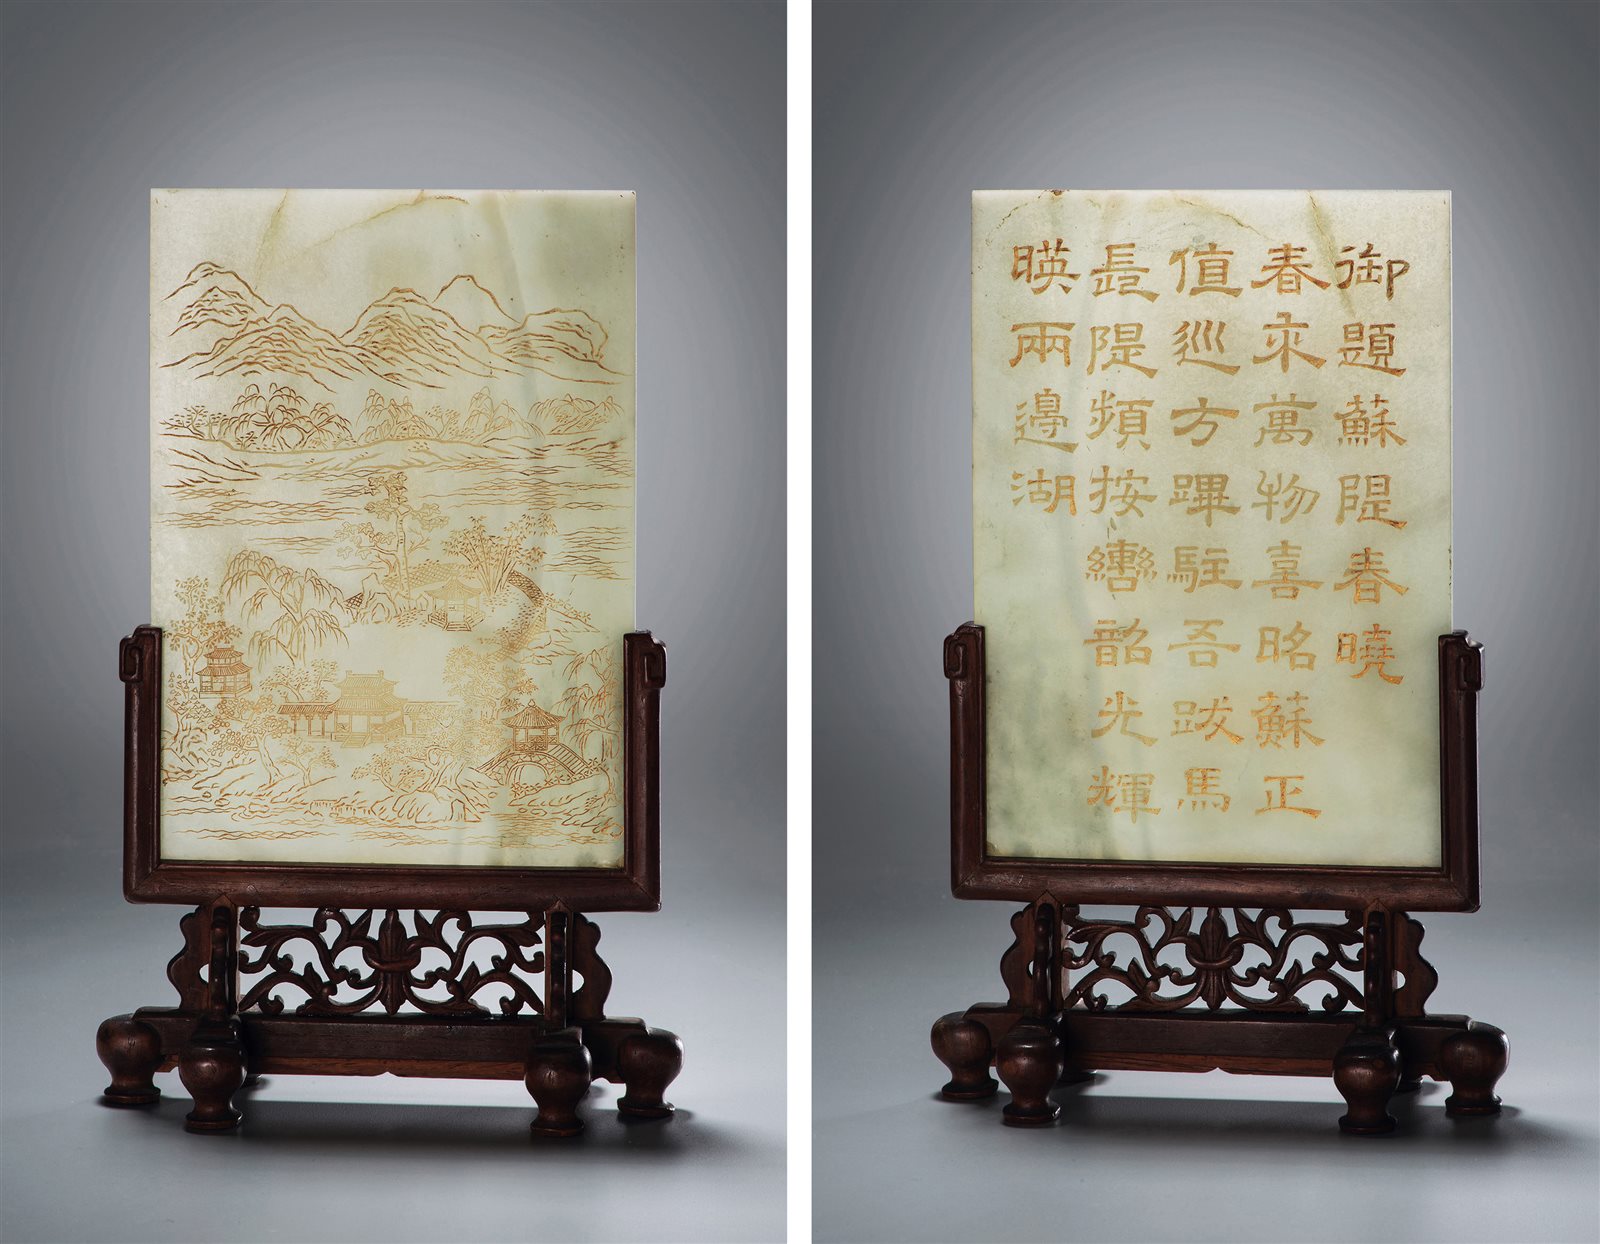 御題蘇隄春曉
春來萬物喜昭蘇正
值巡方蹕駐吾跋馬
長隄頻按轡韶光輝
暎兩邊湖